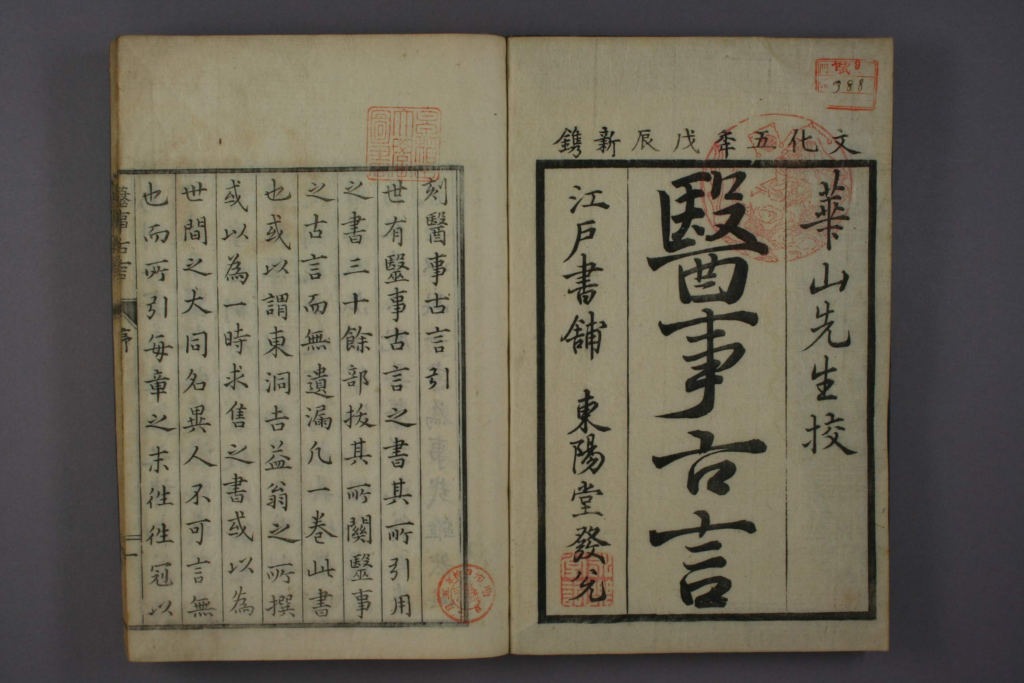 文化五年戊辰新鐫
華山先生挍
醫事古言
江戸書舗 東陽堂發兌
388
刻醫事古言引
世有毉事古言之書其所引用
之書三十餘部拔其所關毉事
之古言而無遺漏凡一卷此書
也或以謂東洞吉益翁之所撰
或以為一時求售之書或以為
世間之大同名異人不可言無
也而所引每章之末徃徃冠以
醫事古言
序
一